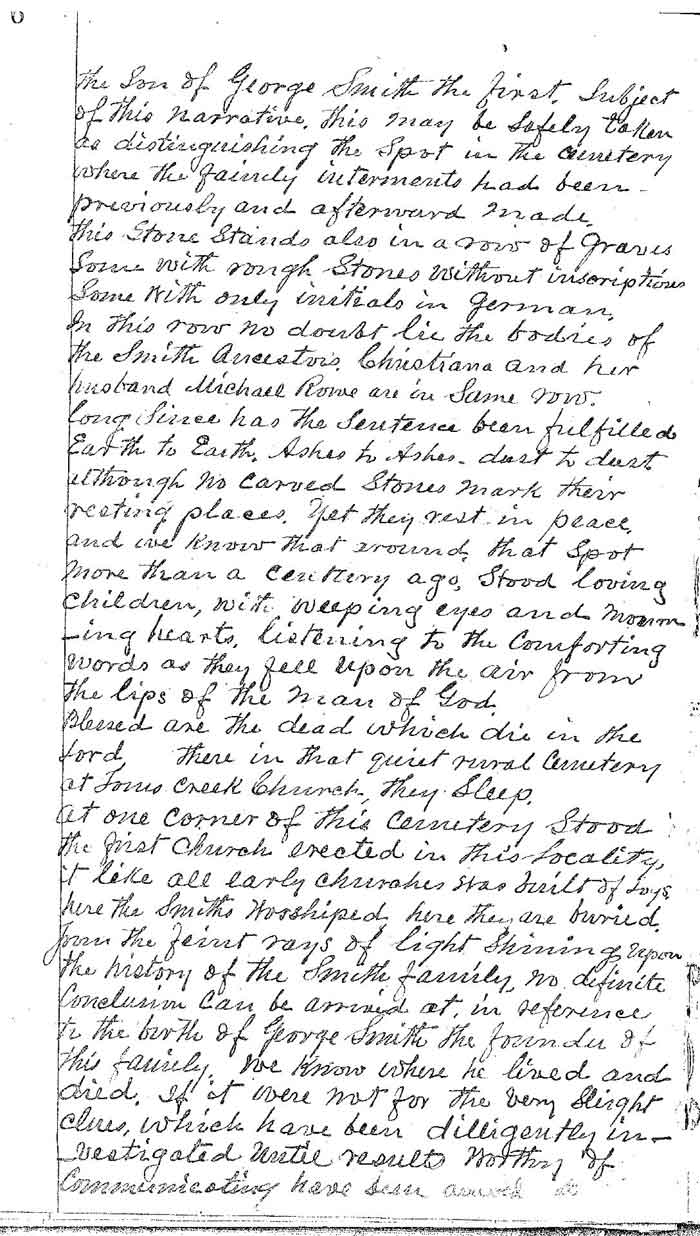 6
the Son of George Smith the first. Subject
of this narrative. this may be Safely taken
as distinguishing the Spot in the cemetery
where the family interments had been -
previously and afterward made.
this Stone Stands also in a row of graves
Some with rough Stones without inscriptions
Some With only initials in German.
In this row no doubt lie the bodies of
the Smith Ancestors. Christiana and her
husband Michael Rowe are in Same row.
long Since has the Sentence been fulfilled
Earth to Earth. Ashes to Ashes - dust to dust
although no carved Stones mark their
resting places. Yet they rest in peace.
and we know that around that Spot
more than a century ago, Stood loving
children, with weeping eyes and mourn
-ing hearts, listening to the Comforting
words as they fell upon the air from
the lips of the man of God.
Blessed are the dead which die in the
Lord, there in that quiet rural Cemetery
at Toms Creek Church, they Sleep.
At one corner of this Cemetery Stood
the first Church erected in this locality,
it like all early churches was built of logs.
here the Smiths Worshiped, here they are buried.
from the feint rays of light Shining upon
the history of the Smith family, no definite
Conclusion Can be arrived at, in reference
to the birth of George Smith the founder of
this family. We know where he lived and
died. If it were not for the very Slight
clues, which have been dilligently in-
-vestigated until results Worthy of
Communicating have been arrived at